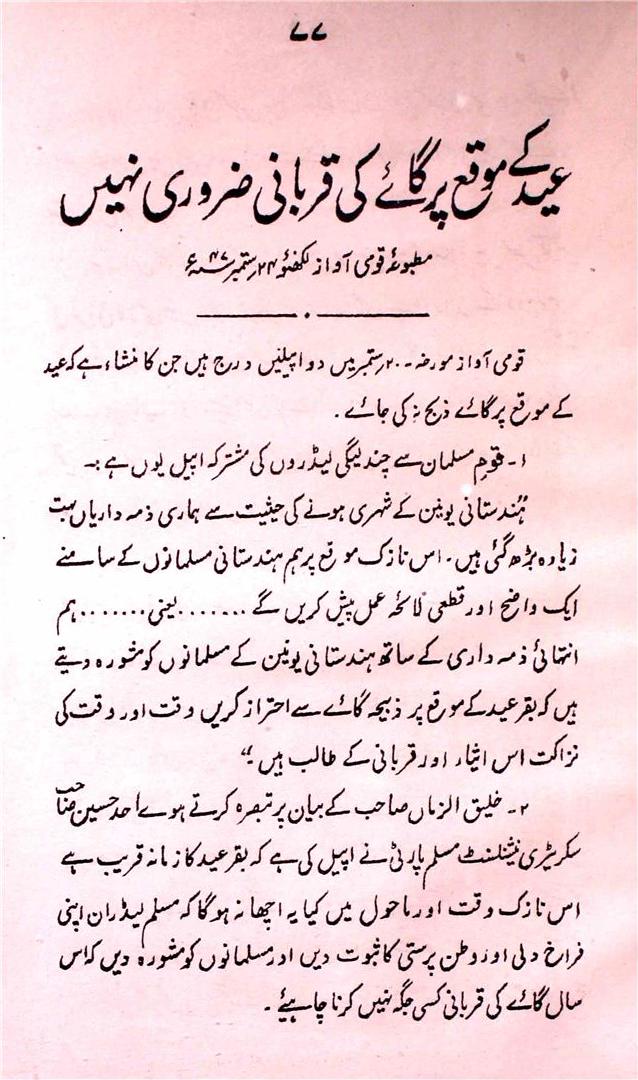 ۷۷
عید کے موقع پر گائے کی قربانی ضروری نہیں
مطبوعۂ قومی آواز لکھنؤ ۲۴ ستمبر ۴۷ء
قومی آواز مورخہ ۔ ۲۰ ستمبر میں دو اپیلیں درج ہیں جن کا منشاء ہے کہ عید
کے موقع پر گائے ذبح نہ کی جائے ۔
۱ ۔ قوم مسلمان سے چند لیگی لیڈروں کی مشترکہ اپیل یوں ہے :۔
ہندستانی یونین کے شہری ہونے کی حیثیت سے ہماری ذمہ داریاں بہت
زیادہ بڑھ گئی ہیں ۔ اس نازک موقع پر ہم ہندستانی مسلمانوں کے سامنے
ایک واضح اور قطعی لائحۂ عمل پیش کریں گے ....... یعنی ....... ہم
انتہائی ذمہ داری کے ساتھ ہندستانی یونین کے مسلمانوں کو مشورہ دیتے
ہیں کہ بقر عید کے موقع پر ذبیحہ گائے سے احتراز کریں وقت اور وقت کی
نزاکت اس ایثار اور قربانی کے طالب ہیں ۔"
۲ ۔ خلیق الزماں صاحب کے بیان پر تبصرہ کرتے ہوے احمد حسین صاحب
سکریٹری نیشنلسٹ مسلم پارٹی نے اپیل کی ہے کہ بقر عید کا زمانہ قریب ہے
اس نازک وقت اور ماحول میں کیا یہ اچھا نہ ہوگا کہ مسلم لیڈران اپنی
فراخ دلی اور وطن پرستی کا ثبوت دیں اور مسلمانوں کو مشورہ دیں کہ اس
سال گائے کی قربانی کسی جگہ نہیں کرنا چاہیئے ۔